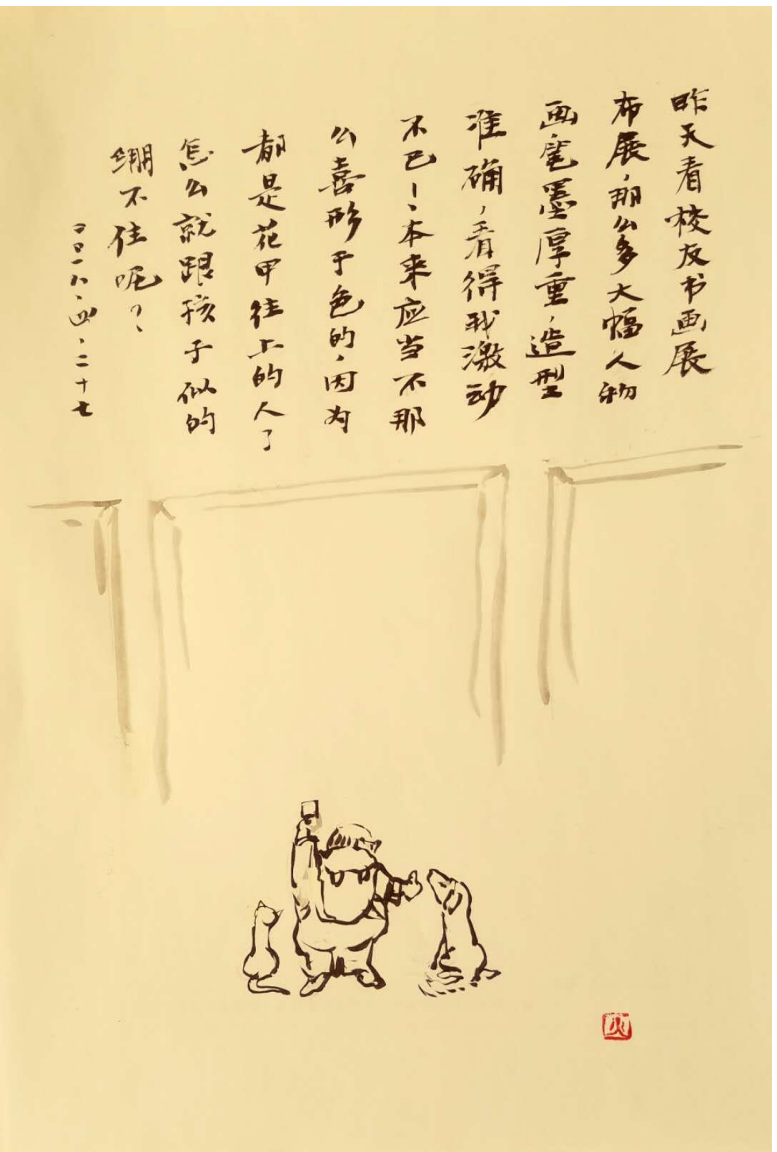 昨天看校友书画展
布展，那么多大幅人物
画笔墨厚重，造型
准确，看得我激动
不已！本来应当不那
么喜形于色的，因为
都是花甲往上的人了
怎么就跟孩子似的
绷不住呢？
二〇一八·四·二十七